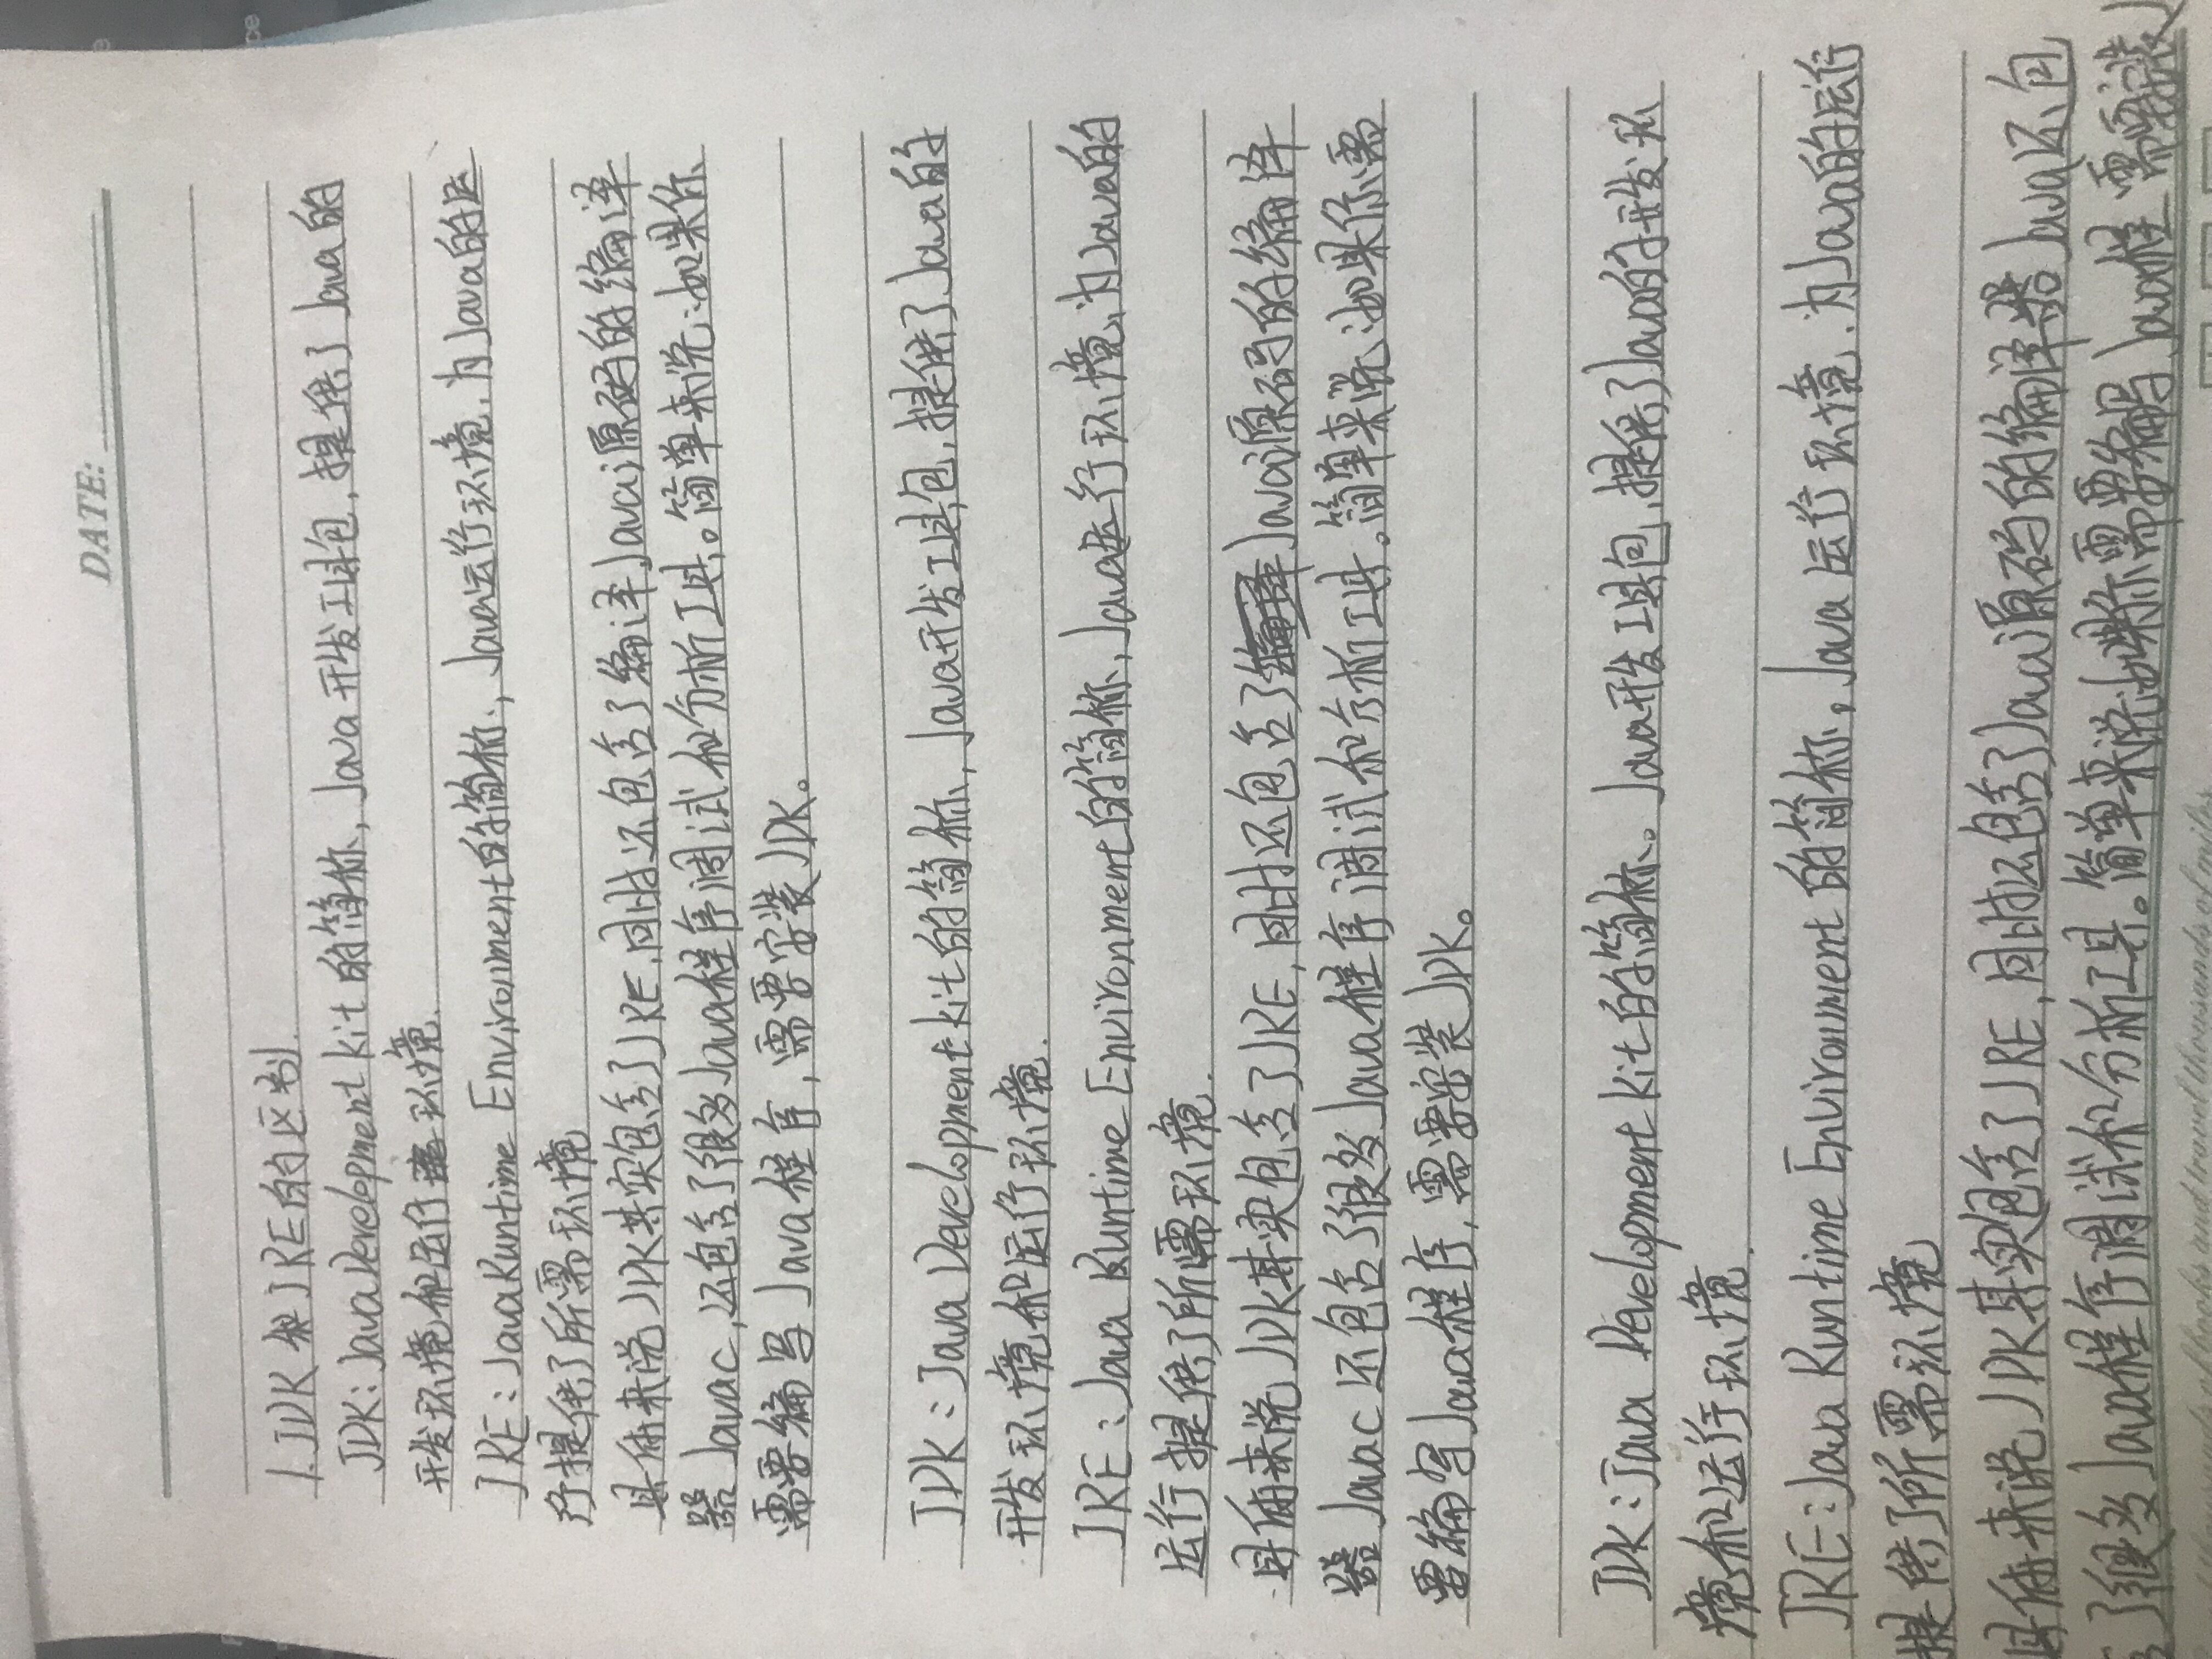 DATE:
1.JDK和JRE的区别.
JDK:Java Development kit的简称,Java开发工具包,提供了Java的
开发环境和运行环境.
JRE:Java Runtime Environment的简称,Java运行环境,为Java的运
行提供了所需环境
具体来说JDK其实包含了JRE,同时还包含了编译Java源码的编译
器Javac,还包含了很多Java程序调试和分析工具。简单来说:如果你
需要编写Java程序,需要安装JDK。
JDK:Java Development kit的简称,Java开发工具包,提供了Java的
开发环境和运行环境.
JRE:Java Runtime Environment的简称,Java运行环境,为Java的
运行提供了所需环境.
具体来说JDK其实包含了JRE,同时还包含了Java源码的编译
器Javac还包含了很多Java程序调试和分析工具。简单来说:如果你需
要编写Java程序,需要安装JDK。
JDK:Java Development kit的简称。Java开发工具包,提供了Java的开发环
境和运行环境.
JRE:Java Runtime Environment的简称,Java运行环境.为Java的运行
提供了所需环境
具体来说JDK其实包含了JRE,同时还包含了Java源码的编译器Java还包
含了很多Java程序调试和分析工具。简单来说:如果你需要编写Java程 需要安装J
thousands of books and travel thousands of miles